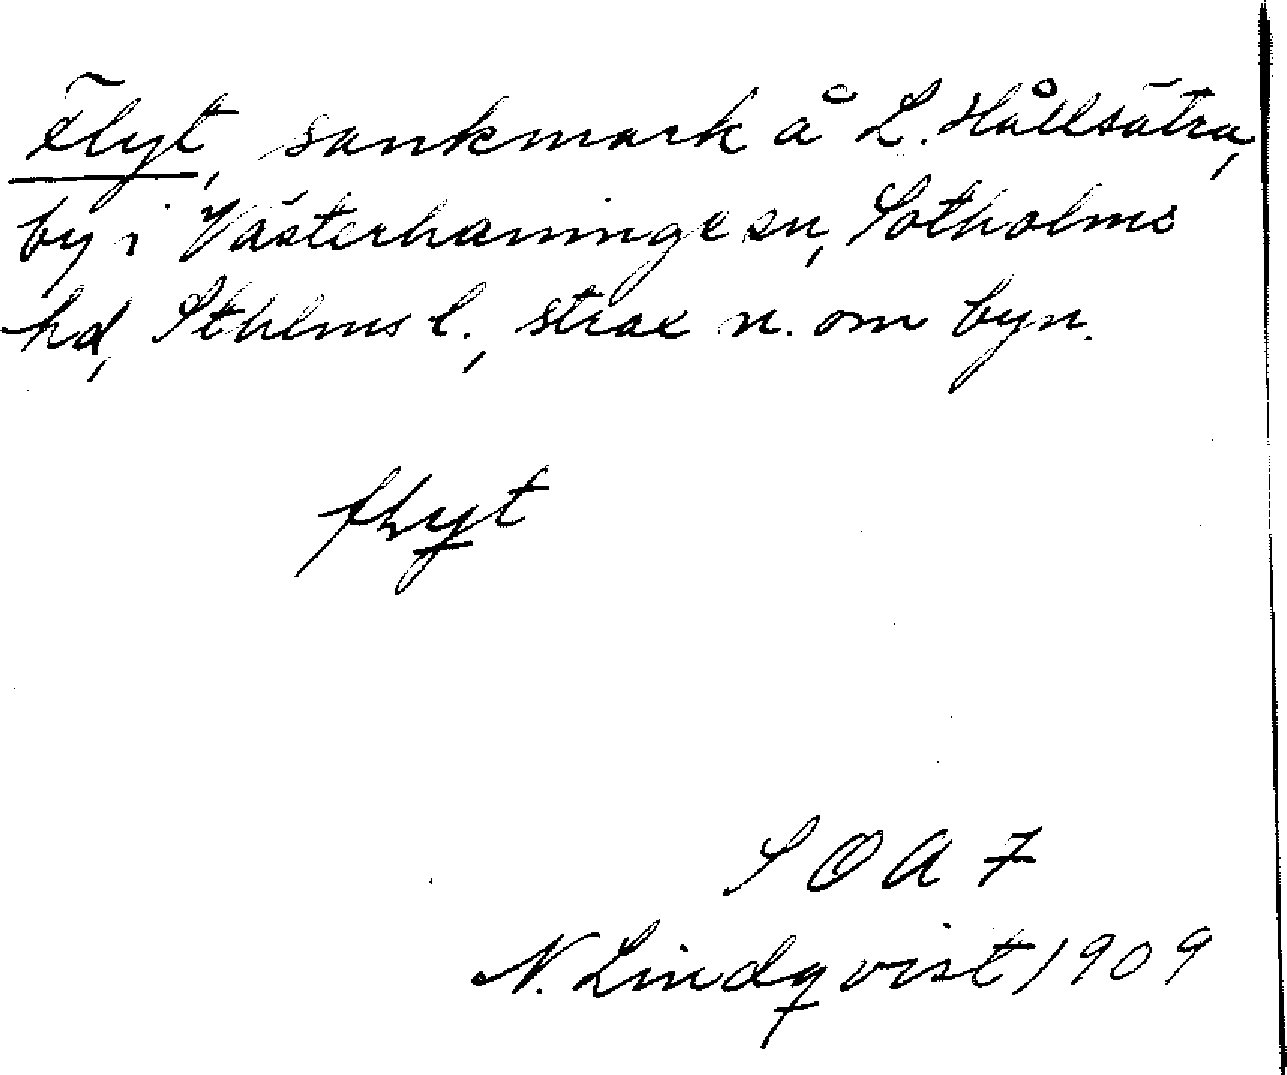 Flyt, sankmark å L. Hållsätra,
by i Västerhaninge sn, Sotholms
hd, Sthlms l., strax n. om byn.
flyt
SOA 7
N. Lindqvist 1909